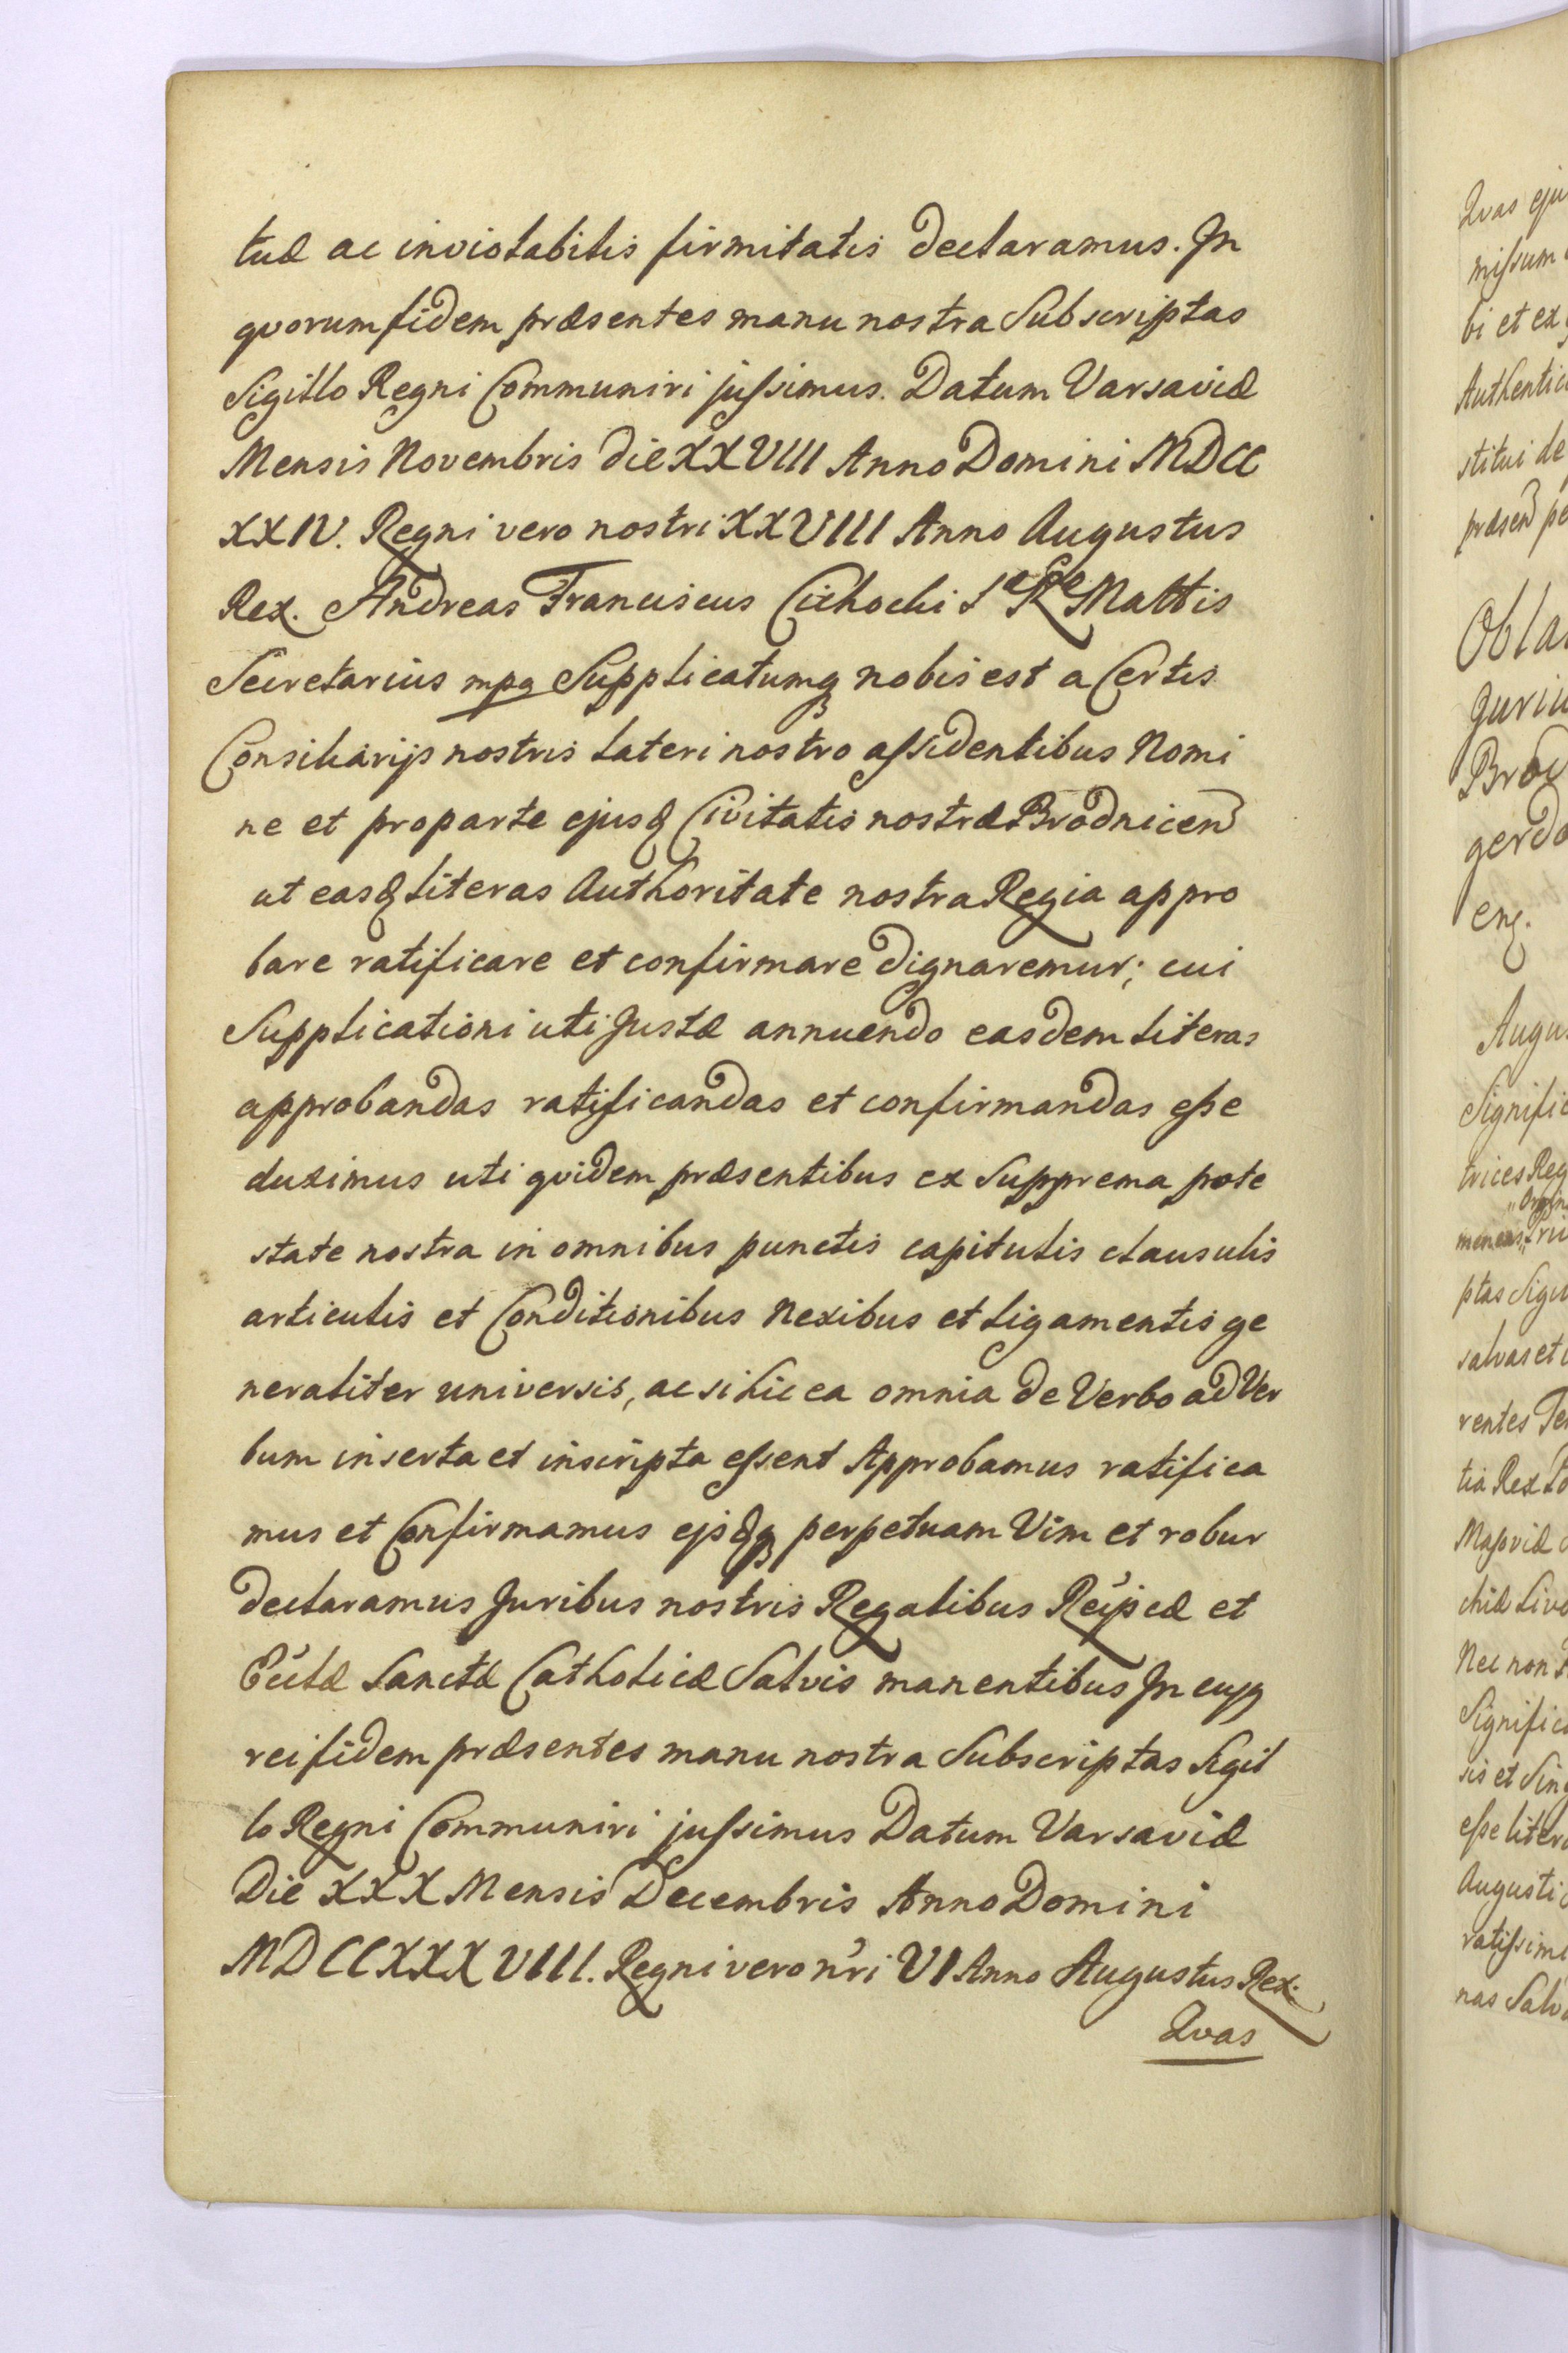 tuæ ac inviolabilis firmitatis declaramus. In
qvorum fidem præsentes manu nostra Subscriptas
Sigillo Regni Communiri jussimus. Datum Varsaviæ
Mensis Novembris die XXVIII Anno Domini MDCC
XXIV. Regni vero nostri XXVIII Anno Augustus
Rex. Andreas Franciscus Cichocki S Rᵉ Mattis
Secretarius mpa Supplicatumq nobis est a Certis
Consiliarijs nostris lateri nostro assidentibus Nomi
ne et pro parte ejusd Civitatis nostræ Brodnicen
ut easd literas Authoritate nostra Regia appro
bare ratificare et confirmare dignaremur; cui
Supplicationi uti Justæ annuendo easdem literas
approbandas ratificandas et confirmandas esse
duximus uti qvidem præsentibus ex Supprema pote
state nostra in omnibus punctis capitulis clausulis
articulis et Conditionibus Nexibus et ligamentis ge
neraliter universis, ac si hic ea omnia de Verbo ad Ver
bum inserta et inscripta essent Approbamus ratifica
mus et Confirmamus ejsdq perpetuam Vim et robur
declaramus Juribus nostris Regalibus Reipcæ et
Ecclæ Sanctæ Catholicæ Salvis manentibus In cujq
rei fidem præsentes manu nostra Subscriptas Sigil
lo Regni Communiri jussimus Datum Varsaviæ
Die XXX Mensis Decembris Anno Domini
MDCCXXXVIII. Regni vero nri VI Anno Augustus Rex.
Qvas
Qvas eju
missum
bi et ex
Authentic
stitui de
præsen pe
Obla
Juriu
Brod
gerdo
eng.
Augu
Signific
trices Reg
ptas Sigi
salvas et
rentes Te
tia Rex
Masoviæ
chiæ Livo
Nec non
Signific
sis et Sing
esse liter
Augusti
ratissimi
nas Salv